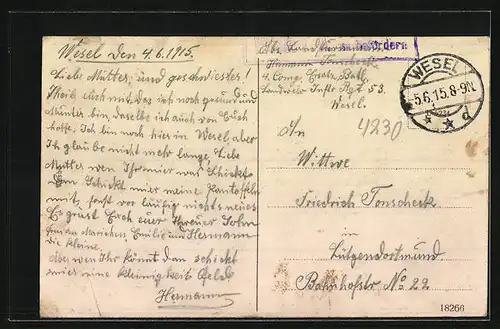 Wesel den 4.6.1915.
Liebe Mutter, und geschwiester!
Theile euch mit, das ich noch gesund und
Munter bin, daselbe ich auch von Euch
hoffe. Ich bin noch hier in Wesel, aber
Ich glaube nicht mehr lange, Liebe
Mutter wen Ihr mier was Schickt
Dan Schickt mier meine Pantoffeln
mit, sonst vor läufig nichts neues
Es grüst Euch euer Threuer Sohn
Mariechen, Emilie und Hermann
die kleine.
wen Ihr könnt dan schickt
mier eine kleinigkeit Geld
Hermann
Abs. Landsturmmann
Hermann Tonscheck
4. Comp. Ersatz Batl.
Landwehr Inftr Rgt. 53.
Wesel.
WESEL
5.6.15.8-9N.
* * d
4230
An
Wittwe
Friedrich Tonscheck
in
Lütgendortmund
Bahnhofstr No 22
18266